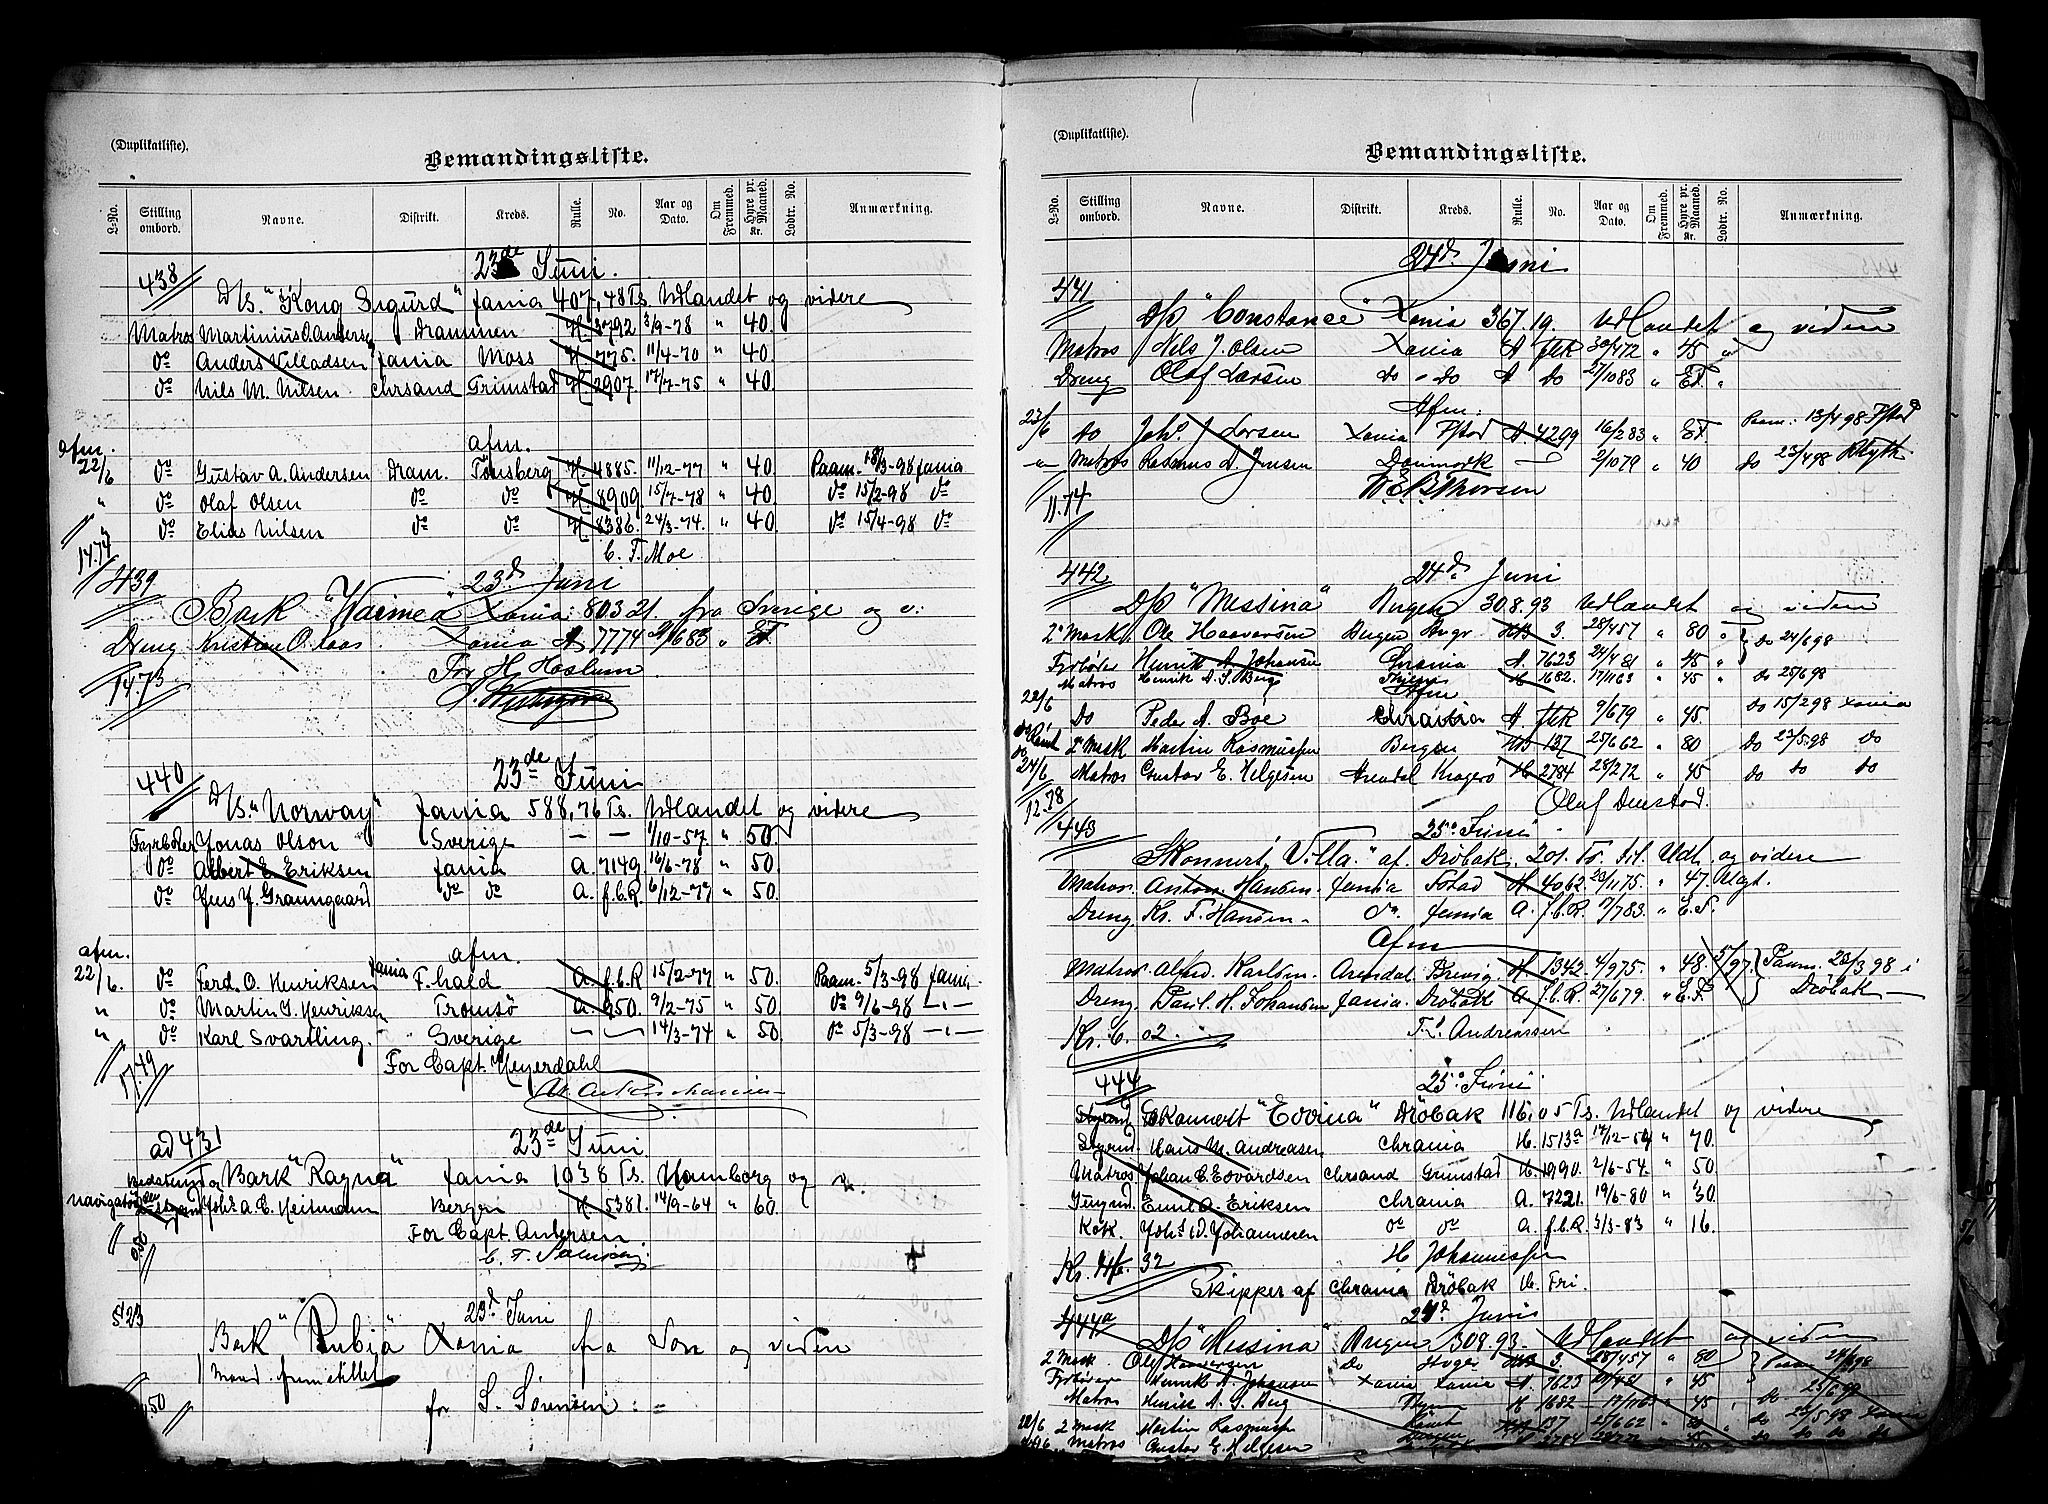 (Duplikatliste).
Bemandingsliste.
L-No. Stilling ombord. Navne. Distrikt. Kreds. Rulle. No. Aar og Dato. Om Fremmed. Hyre pr. Maaned. Kr. Lodtr. No. Anmærkning.
438 23de Juni.
D/S. "Kong Sigurd" Xania 407,48 Ts. Udlandet og videre
Matros Martinius O. Andersen Drammen H. 3792 3/9-78 " 40.
do Anders Villadsen Xania Moss H 775. 11/4-70 " 40.
do Nils M. Nilsen Chrsand Grimstad H. 2907. 17/7-75 " 40.
afm. afm.
22/6 do Gustav A. Andersen Dram. Tønsberg H. 4885. 11/12-77 " 40. Paam. 18/3-98 Xania
" do Olaf Olsen do do H. 8909 15/7-78 " 40 do 15/2-98 do
" do Elias Nilsen do do H 8386. 24/3-74. " 40. do 15/4-98 do
14.74 C. F. Moe
439 23d Juni
Bark "Waimea" Xania 803 21. fra Sverige og v:
Dreng Kristian O. Aas Xania A 7774 683 " ET.
14.73 For H. Haslum
440 23de Juni
D/S. "Norway" Xania 588,76 Ts. Udlandet og videre
Fyrbøder Jonas Olson Sverige — — 1/10-57. " 50.
do Albert E. Eriksen Xania A. 7149 16/6-78 " 50.
do Jens J. Graungaard do do A. f.b.R. 6/12-77 " 50.
afm. afm.
22/6. do Ferd. O. Henriksen Xania F.hald A. f.b.R 15/2-77 " 50. Paam. 5/3-98 Xania.
" do Martin G. Henriksen Tromsö A. 950. 9/2-75 " 50 do 9/6-98 —"—
" do Karl Svartling. Sverige — — 14/3-74 " 50. do 5/3-98 —"—
17.49 For Capt. Heyerdahl
ad 431 23de Juni
Bark "Ragna" Xania 1038 Ts. Hamborg og v.
Johs A. C. Heitmann Bergen H 5381. 14/9-64 " 60.
For Capt. Andersen
0.50
+
523 23d Juni
Bark "Rubia" Xania fra Son og viden
1 Mand fremstillet
.50 for S. Sörensen
(Duplikatliste).
Bemandingsliste.
L-No. Stilling ombord. Navne. Distrikt. Kreds. Rulle. No. Aar og Dato. Om Fremmed. Hyre pr. Maaned. Kr. Lodtr. No. Anmærkning.
441 24d. Juni
D/p "Constance" Xania 367.19. Udlandet og viden
Matros Nils J. Olsen Xania A flk 30/472 " 45 "
Dreng Olaf Larsen do - do A do 27/1083 " ET "
Afm:
23/6 do Johs J. Larsen Xania Fstad A 4299 16/283 " ET Paam: 13/498 Fstad
" Matros Rasmus A. Jensen Danmark — 2/1079 " 40 do 23/498 Blyth
11.74 W. E. B. Thorsen
442. 24d. Juni
D/p "Messina" Bergen 308.93 Udlandet og viden
2. Mask. Ole Haavorsen Bergen Brgr HB 3. 28/457 " 80 " } do 24/698
Fyrbøder Henrik A. Johansen Xrania A. 7623 24/481 " 45 "
Matros Henrik A. S. Berg H 1682. 17/1163 " 45 " do 25/698
Afm
22/6 do Peder A. Böe Chrania A. flk 9/679 " 45. do 15/298 Xania
2. Mask Martin Rasmussen Bergen HB 137 25/662 " 80 do 23/5.98 do
24/6 Matros Gustav E. Helgesen Arendal Kragerö H 2784 28/272 " 45 do do do
12.78 Olaf Denstad.
443 25. Juni
Skonnert "Villa." af. Dröbak. 201. Ts. til Udl. og videre
Matros. Anton Hansen. Xania Fstad H 4062. 23/1175. " 47.
Dreng. Kr. F. Hansen. do. Xania A. f.b.R. 783. " E.T.
Afm
Matros. Alfred. Karlsen. Arendal. Brevig. H 1342. 4/975. " 48. 5/97. } Paam. 23/3.98 i
Dreng. Paul. H. Johansen Xania. Dröbak A. f.b.R. 27/679. " E.T. Dröbak —
Kr. 6. 02. Andreassen
444 25. Juni
Skonnert "Edvina" Dröbak 116,05 Ts. Udlandet og videre
Styrmd. Hans M. Andreasen Chrania H. 1513a 17/12-59 " 70.
Matros. Johan C. Edvardsen Chrsand Grimstad H. 1990. 2/6-54. " 50
Emil A. Eriksen Chrania A. 7221. 19/6-80 " 30.
Kok. Johs. D. Johannesen do do A. f.b.R. 3/3-83 " 16.
Kr. 32 H Johannessen
Skipper af Chrania Dröbak H. Fri.
444a 24d. Juni
D/p "Messina" Bergen 308.93. Udlandet og viden
2 Mask. Ole Haavorsen do HB 3. 28/457 " 80 } Paam 24/698
Fyrbøder Henrik A. Johansen Xania Xania A. 7623 24/481 " 45
Matros Henrik A. S. Berg H 1682 — 17/1163 " 45 do 25/698
22/6 2 Mask Martin Rasmussen HB 137 25/662 " 80 " do 23/598 Xania
Matros Gustav E. Helgesen 2784 28/272 " 45 do do do